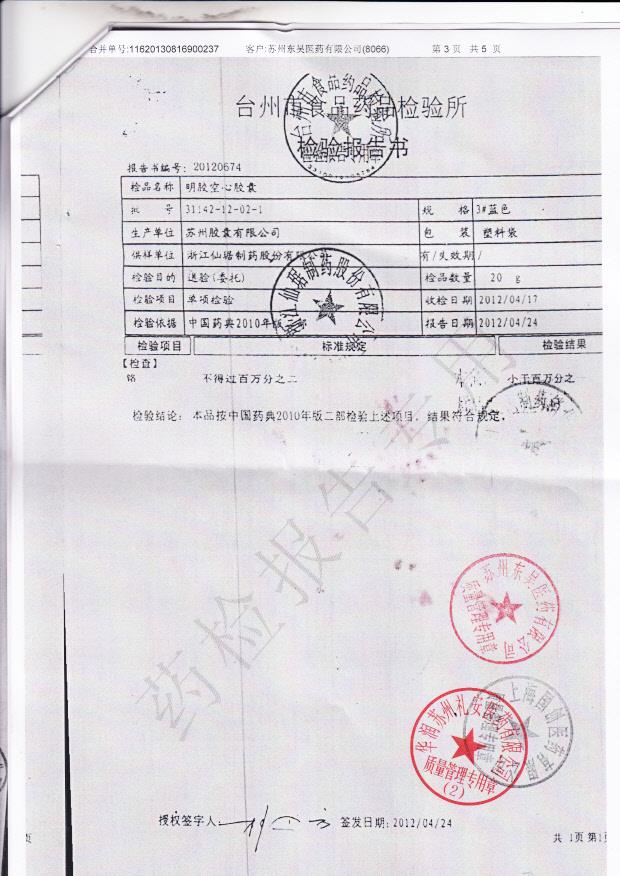 合并单号:11620130816900237 客户:苏州东吴医药有限公司(8066) 第 3 页 共 5 页
台州市食品药品检验所
检验报告书
报告书编号: 20120674
检品名称 明胶空心胶囊
批 号 31142-12-02-1 规 格 3#蓝色
生产单位 苏州胶囊有限公司 包 装 塑料袋
供样单位 浙江仙琚制药股份有限公司 有/失效期 /
检验目的 送验(委托) 检品数量 20 g
检验项目 单项检验 收检日期 2012/04/17
检验依据 中国药典2010年版 报告日期 2012/04/24
检验项目 标准规定 检验结果
【检查】
铬 不得过百万分之二 小于百万分之
检验结论: 本品按中国药典2010年版二部检验上述项目, 结果符合规定.
药检报告专用
浙江仙琚制药股份有限公司
苏州东吴医药有限公司
质量管理专用章
上海国创医药有限公司
华润苏州礼安医药有限公司
质量管理专用章
(2)
授权签字人 签发日期: 2012/04/24
共 1页 第1
页